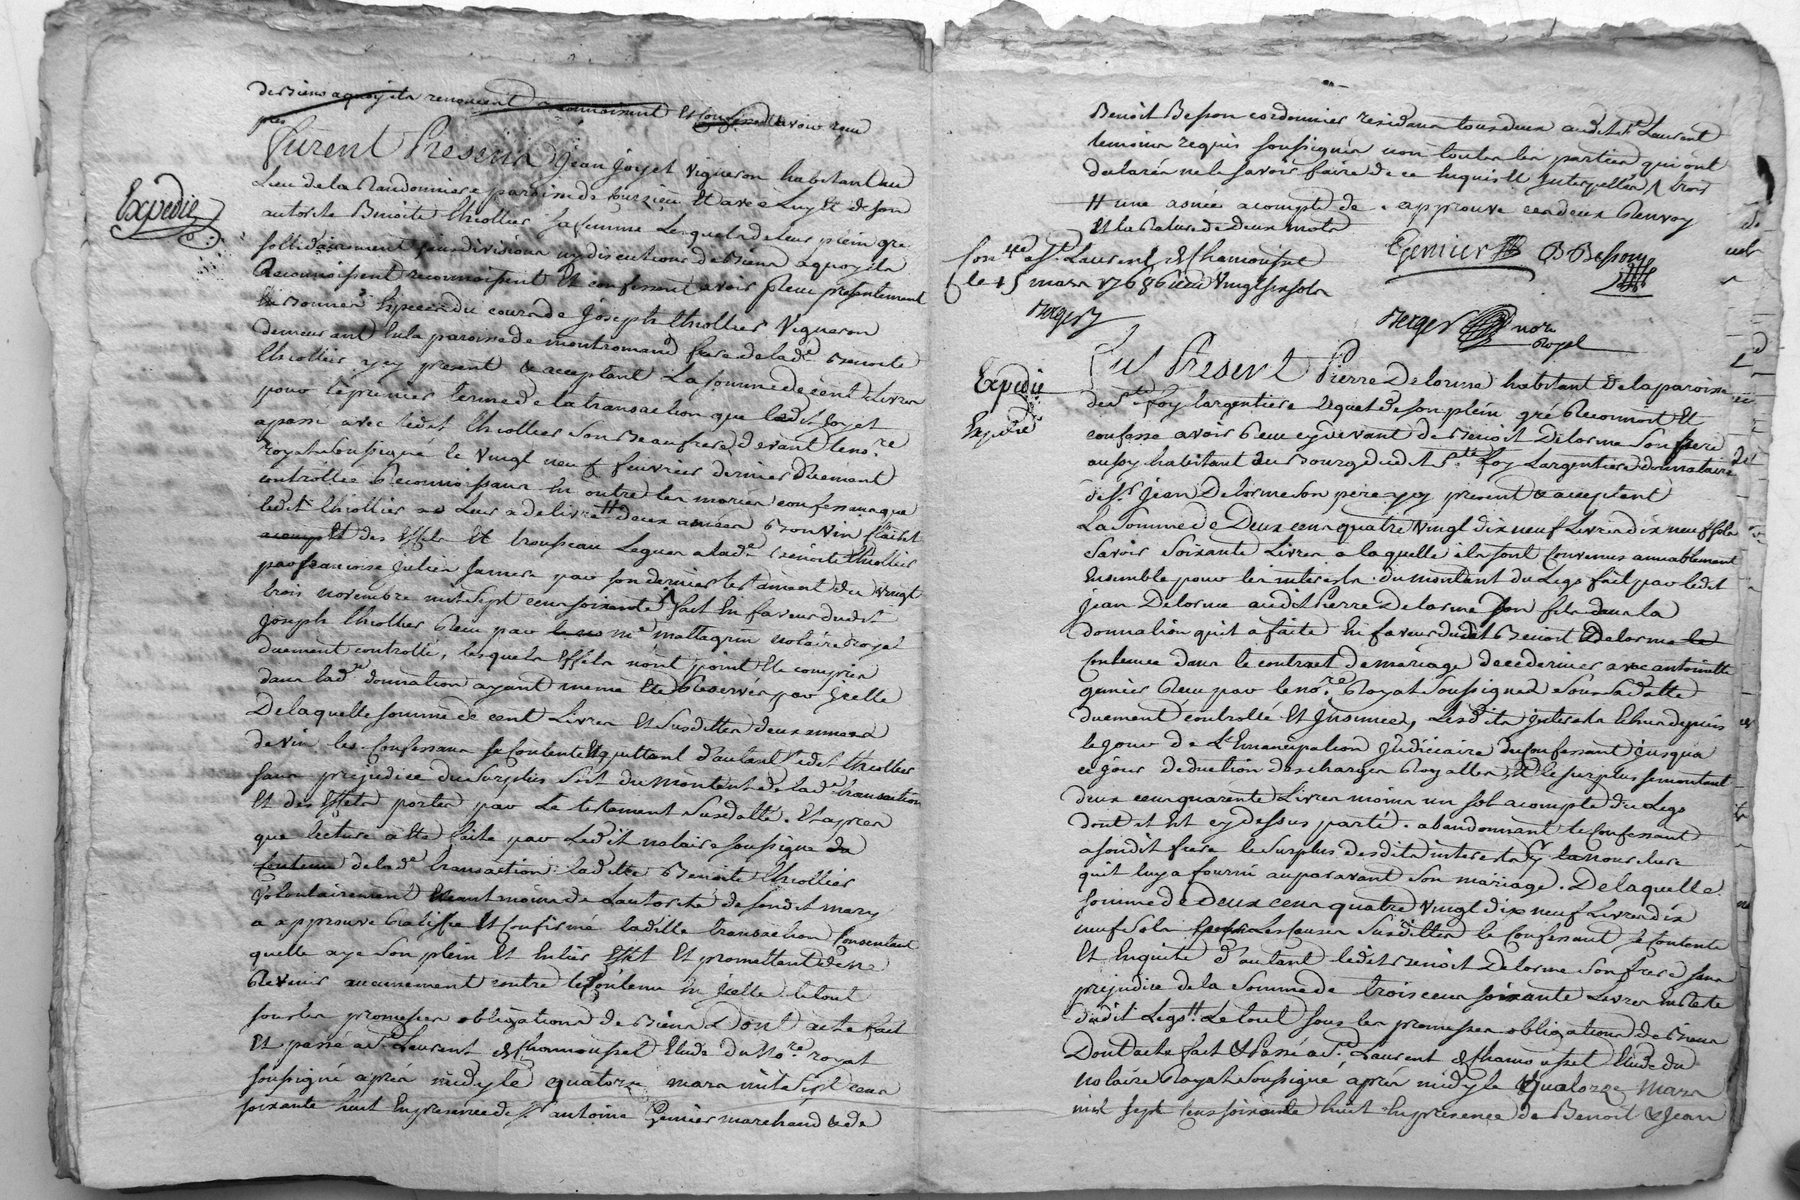 de Biens a quoy ils renoncent reconnoissent et confessent avoir recu
pres
Furent Presens Jean Joyet vigneron habitant au
Lieu de la Randonniere paroisse de Courzieu et avec Luy et de son
Expedié
autorite Benoite Thiollier sa femme Lesquels de leur plein gre
sollidairement sans division ny discution de Biens a quoy ils
Renoncissent reconnoissent Et confessent avoir Receu presentement
En Bonnes Especes du cours de Joseph Thiollier Vigneron
demeurant En la paroisse de montromand frere de lade Benoite
Thiollier icy present & acceptant La somme de cent Livres
pour le premier terme de la transaction que led Joyet
a passe avec ledit Thiollier son Beaufrere devant le nore
royal soussigne le vingt neuf fevrier dernier Duement
controllée Reconnoissans En outre les mariés confessans que
ledit Thiollier a Leur a delivré # deux asnées Bon vin Clairet
acompt Et des Effets Et trousseau Legues a lade Benoite Thiollier
par francoise Julien sa mere par son dernier testament du vingt
trois novembre mil sept cens soixante fait En faveur dudit
Joseph Thiollier Receu par le no me mattagrin notaire Royal
duement controllé, lesquels Effets n'ont point Ete compris
dans lade donnation ayant meme Ete Reservés par Icelle
De laquelle somme de cent Livres Et susdittes deux annees
de vin les Confessans se contentent Et quittent d'autant ledit Thiollier
sans prejudice du surplus soit du montent de lade transaction
Et des Effets portés par Le testament susdatté. Et apres
que lecture a Ete faite par Ledit notaire soussigne du
Contenu de lade transaction ladite Benoite Thiollier
volontairement Neantmoins de L'autorité de sondit mary
a approuve Ratiffie Et Confirmé laditte transaction Consentant
quelle aye Son plein Et Entier Effet Et promettent de ne
Revenir aucunement contre le Contenu En Icelle le tout
sous les promesses obligations de Biens Dont acte fait
Et passé a St Laurent de Chamousset Etude du Nore royal
soussigné après midy le quatorze mars mil sept cens
soixante huit En presence de Sr antoine Genier marchand & de
Benoit Besson cordonnier residans tous deux audit St Laurent
temoins requis soussignés non toutes les parties qui ont
declarés ne le savoir faire de ce Enquis Et Interpellés / trois
# une asnée acompte de . approuve ces deux Renvoy
et la Rature de deux mots
Conlle a St Laurent de Chamousset
le 15 mars 1768 Receu Vingt six sols
Berger
EGenier B Besson
Berger nore
Royal
Fut Present Pierre Delorme habitant de la paroisse
Expedie
de Ste foy Largentiere lequel de son plein gré Reconnoit Et
Expedié
confesse avoir Receu cy devant de Benoit Delorme Son frere
aussy habitant du Bourg dudit Ste foy Largentiere donnataire
de Sr Jean Delorme son pere icy present & acceptent
La Somme de Deux cens quatre vingt dix neuf Livres dix neuf sols
Savoir Soixante Livres a laquelle ils sont convenus amiablement
Ensemble pour les interets du montant du Legs fait par ledit
Jean Delorme audit Pierre Delorme Son fils dans la
donnation qu'il a faite En faveur dudit Benoit Delorme le
Contenue dans le contract de mariage de ce dernier avec antoinette
genier Receu par le nore Royal Soussigné Sous Sa datte
duement controllé Et Insinué, Lesdits interets Echus depuis
le jour de L'Emancipation Judiciaire du Confessant jusqua
ce jour deduction des charges Royalles, & le surplus se montant
deux cens quarente Livres moins un sol acompte du Legs
dont il Est cy dessus parlé . abandonnant le Confessant
a sondit frere le surplus desdits interets p la nourriture
quil luy a fourni auparavant Son mariage . De laquelle
somme de Deux cens quatre vingt dix neuf Livres dix
neuf sols Les causes Susdittes le Confessant se contente
Et En quitte d'autant ledit Benoit Delorme son frere sans
prejudice de la somme de trois cens soixante Livres En Reste
dudit Legs # Le tout sous les promesses obligations de Biens
Dont acte fait & Passé a St Laurent de Chamousset Etude du
notaire Royal soussigné après midy le quatorze mars
mil sept cens soixante huit En presence de Benoit & Jean